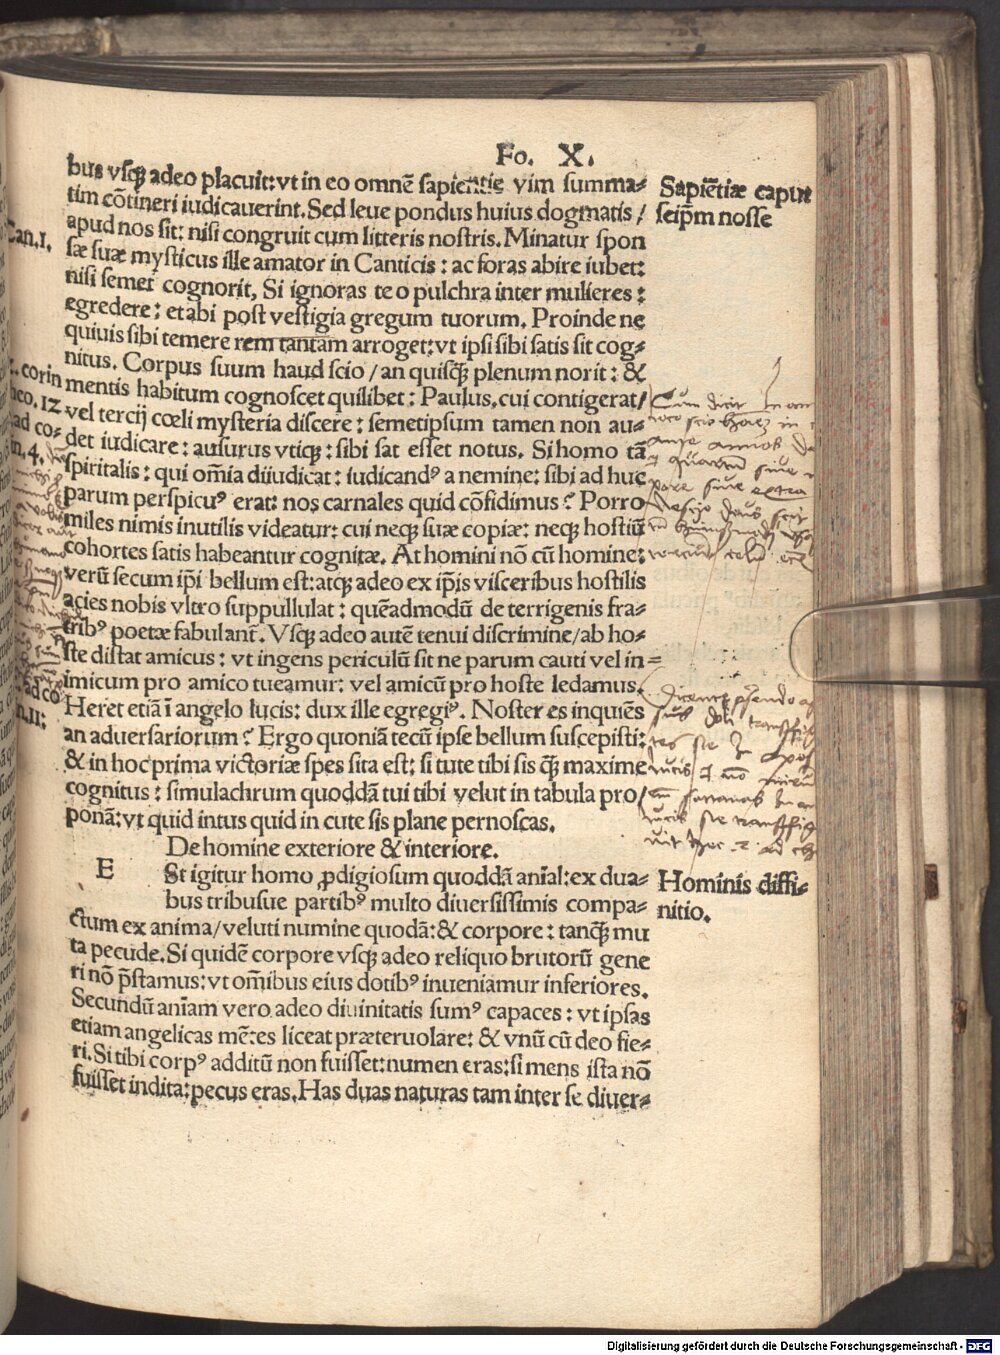 Fo. X.
bus vsq; adeo placuit: vt in eo omnē sapientie vim summa-
tim cōtineri iudicauerint. Sed leue pondus huius dogmatis /
apud nos sit: nisi congruit cum litteris nostris. Minatur spon
sæ suæ mysticus ille amator in Canticis : ac foras abire iubet:
nisi semet cognorit. Si ignoras te o pulchra inter mulieres :
egredere: et abi post vestigia gregum tuorum. Proinde ne
quiuis sibi temere rem tantam arroget: vt ipsi sibi satis sit cog-
nitus. Corpus suum haud scio / an quisq̄; plenum norit : &
mentis habitum cognoscet quilibet : Paulus, cui contigerat /
vel tercij cœli mysteria discere : semetipsum tamen non au-
det iudicare : ausurus vtiq; : sibi sat esset notus. Si homo tā
spiritalis : qui om̄ia diiudicat : iudicandꝰ a nemine: sibi ad huc
parum perspicuꝰ erat: nos carnales quid cōfidimus ? Porro
miles nimis inutilis videatur: cui neq; suæ copiæ: neq; hostiū
cohortes satis habeantur cognitæ. At homini nō cū homine:
verū secum ip̄i bellum est: atq; adeo ex ip̄is visceribus hostilis
acies nobis vltro suppullulat : quēadmodū de terrigenis fra-
tribꝰ poetæ fabulant̄. Vsq; adeo autē tenui discrimine / ab ho-
ste distat amicus : vt ingens periculū sit ne parum cauti vel in=
imicum pro amico tueamur: vel amicū pro hoste ledamus.
Heret etiā ī angelo lucis: dux ille egregiꝰ. Noster es inquiēs
an aduersariorum ? Ergo quoniā tecū ipse bellum suscepisti:
& in hoc prima victoriæ spes sita est: si tute tibi sis q̄; maxime
cognitus : simulachrum quoddā tui tibi velut in tabula pro /
ponā: vt quid intus quid in cute sis plane pernoscas.
De homine exteriore & interiore.
E St igitur homo ꝓdigiosum quoddā anīal: ex dua-
bus tribusue partibꝰ multo diuersissimis compa-
ctum ex anima / veluti numine quodā: & corpore : tanq̄; mu
ta pecude. Si quidē corpore vsq; adeo reliquo brutorū gene
ri nō p̄stamus: vt om̄ibus eius dotibꝰ inueniamur inferiores.
Secundū anīam vero adeo diuinitatis sumꝰ capaces : vt ipsas
etiam angelicas mētes liceat præteruolare: & vnū cū deo fie-
ri. Si tibi corpꝰ additū non fuisset: numen eras: si mens ista nō
fuisset indita: pecus eras. Has duas naturas tam inter se diuer-
Sapiētiæ caput
seip̄m nosse
Hominis diffi-
nitio.
Can. 1.
corin
12
ad co-
4.
ad co
11:
Digitalisierung gefördert durch die Deutsche Forschungsgemeinschaft - DFG